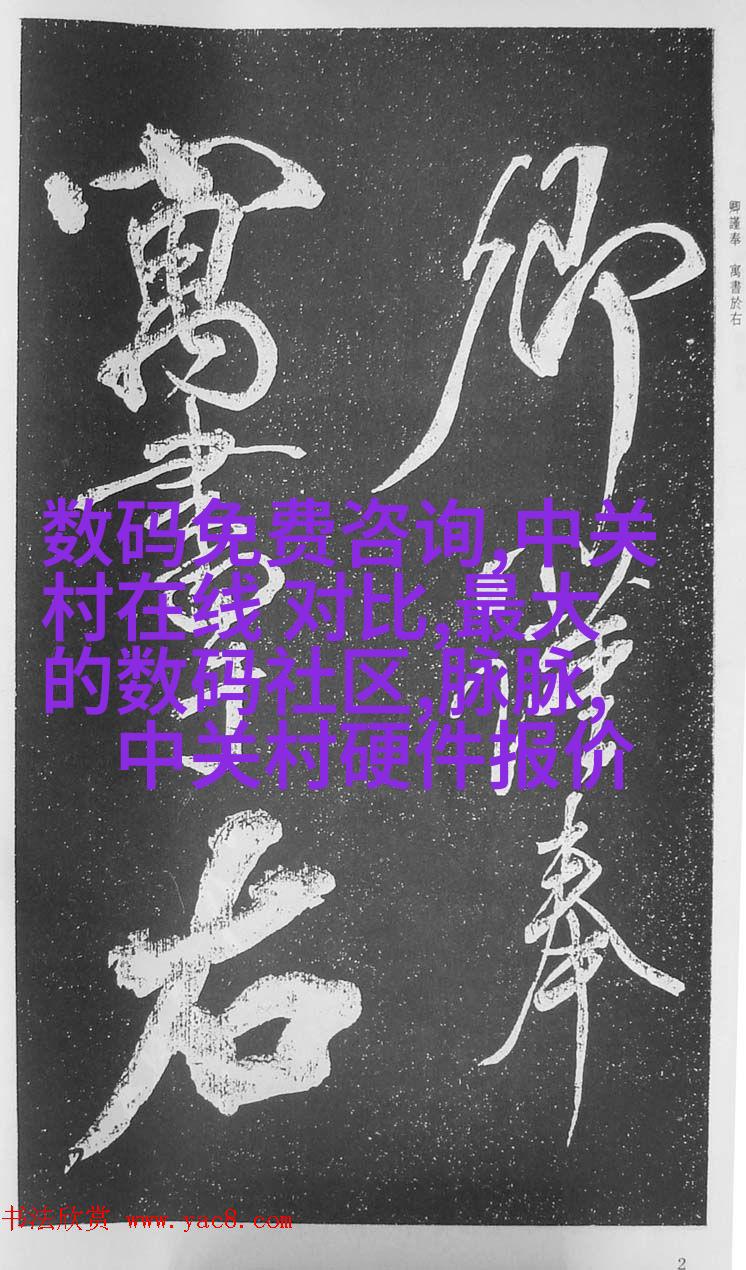 卿謹奉
寓書於右
卿謹奉 寓書於右
数码免费咨询,中关
村在线 对比,最大
的数码社区,脉脉,
中关村硬件报价
书法欣赏 www.yac8.com
2